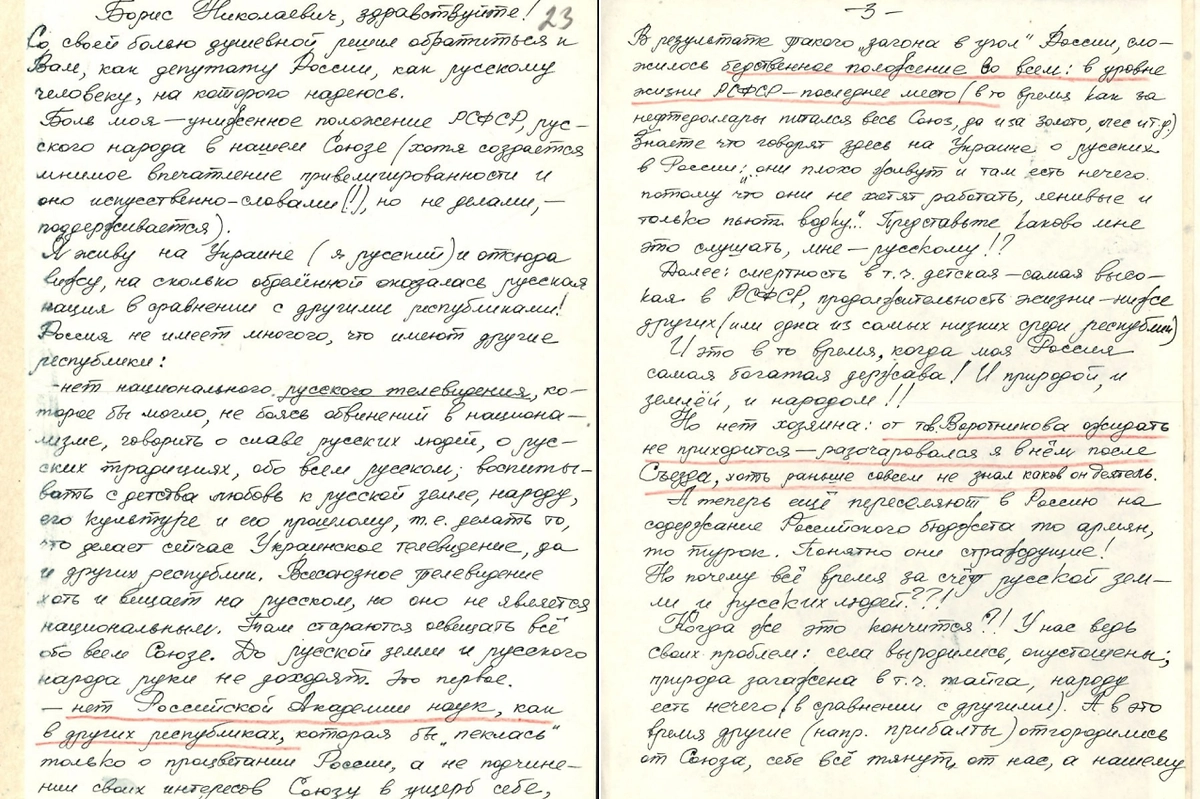 Борис Николаевич, здравствуйте!
23
Со своей болью душевной решил обратиться к
Вам, как депутату России, как русскому
человеку, на которого надеюсь.
Боль моя — униженное положение РСФСР, рус-
ского народа в нашем Союзе (хотя создаётся
мнимое впечатление привелигированности и
оно искусственно-словами(!), но не делами, —
поддерживается).
Я живу на Украине (я русский) и отсюда
вижу, на сколько обделённой оказалась русская
нация в сравнении с другими республиками!
Россия не имеет многого, что имеют другие
республики:
-нет национального русского телевидения, ко-
торое бы могло, не боясь обвинений в национа-
лизме, говорить о славе русских людей, о рус-
ских традициях, обо всем русском; воспиты-
вать с детства любовь к русской земле, народу,
его культуре и его прошлому, т.е. делать то,
что делает сейчас Украинское телевидение, да
и других республик. Всесоюзное телевидение
хоть и вещает на русском, но оно не является
национальным. Там стараются освещать всё
обо всем Союзе. До русской земли и русского
народа руки не доходят. Это первое.
— нет Российской Академии наук, как
в других республиках, которая бы „пеклась"
только о процветании России, а не подчине-
нии своих интересов Союзу в ущерб себе,
-3-
В результате такого „загона в угол" России, сло-
жилось бедственное положение во всем: в уровне
жизни РСФСР — последнее место (в то время как за
нефтедоллары питался весь Союз, да и за золото, лес и т.д.)
Знаете что говорят здесь на Украине о русских
в России: „они плохо живут и там есть нечего
потому что они не хотят работать, ленивые и
только пьют водку..." Представьте каково мне
это слушать, мне — русскому!?
Далее: смертность в т.ч. детская — самая высо-
кая в РСФСР, продолжительность жизни — ниже
других (или одна из самых низких среди республик)
И это в то время, когда моя Россия
самая богатая держава! И природой, и
землёй, и народом!!
Но нет хозяина: от тов. Воротникова ожидать
не приходится — разочаровался я в нём после
Съезда, хоть раньше совсем не знал каков он деятель.
А теперь ещё переселяют в Россию на
содержание Российского бюджета то армян,
то турок. Понятно они страждущие!
Но почему всё время за счёт русской зем-
ли и русских людей???!
Когда же это кончится?!! У нас ведь
своих проблем: села выродились, опустошены;
природа загажена в т.ч. тайга, народу
есть нечего (в сравнении с другими). А в это
время другие (напр. прибалты) отгородились
от Союза, себе всё тянут, от нас, а нашему